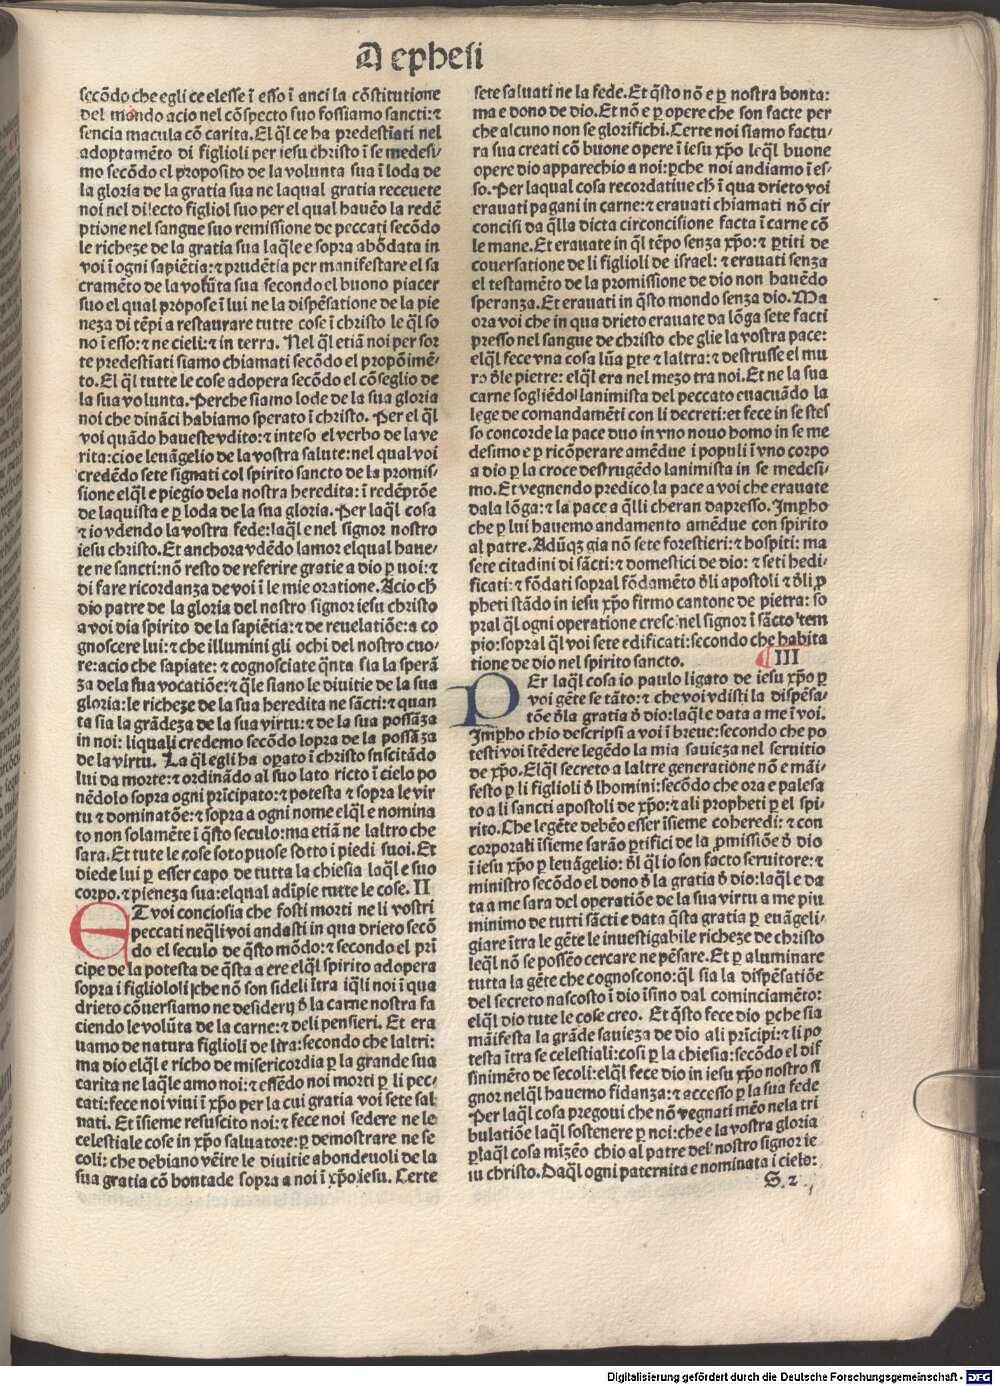 A ephesi
secōdo che egli ce elesse ī esso ī anci la cōstitutione
del mondo acio nel cōspecto suo fossiamo sancti: ⁊
sencia macula cō carita. El q̄l ce ha predestīati nel
adoptamēto di figlioli per iesu christo ī se medesi⸗
mo secōdo el proposito de la volunta sua ī loda de
la gloria de la gratia sua ne laqual gratia receuete
noi nel dilecto figliol suo per el qual hauēo la redē
ptione nel sangue suo remissione de peccati secōdo
le richeze de la gratia sua laq̄le e sopra abōdata in
voi ī ogni sapiētia: ⁊ prudētia per manifestare el sa
cramēto de la volūta sua secondo el buono piacer
suo el qual propose ī lui ne la dispēsatione de la pie
neza di tēpi a restaurare tutte cose ī christo le q̄l so
no ī esso: ⁊ ne cieli: ⁊ in terra. Nel q̄l etiā noi per sor
te predestīati siamo chiamati secōdo el propōimē⸗
to. El q̄l tutte le cose adopera secōdo el cōseglio de
la sua volunta. Perche siamo lode de la sua gloria
noi che dināci habiamo sperato ī christo. Per el q̄l
voi quādo haueste vdito: ⁊ inteso el verbo de la ve
rita: cioe leuāgelio de la vostra salute: nel qual voi
credēdo sete signati col spirito sancto de la promis⸗
sione elq̄l e piegio dela nostra heredita: ī redēptōe
de laquista e ꝑ loda de la sua gloria. Per laq̄l cosa
⁊ io vdendo la vostra fede: laq̄le nel signor nostro
iesu christo. Et anchora vdēdo lamor elqual haue⸗
te ne sancti: nō resto de referire gratie a dio ꝑ uoi: ⁊
di fare ricordanza de voi ī le mie oratione. Acio ch̄
dio patre de la gloria del nostro signor iesu christo
a voi dia spirito de la sapiētia: ⁊ de reuelatiōe: a co
gnoscere lui: ⁊ che illumini gli ochi del nostro cuo⸗
re: acio che sapiate: ⁊ cognosciate q̄nta sia la sperā
za dela sua vocatiōe: ⁊ q̄le siano le diuitie de la sua
gloria: le richeze de la sua heredita ne sācti: ⁊ quan
ta sia la grādeza de la sua virtu: ⁊ de la sua possāza
in noi: li quali credemo secōdo lopra de la possāza
de la virtu. La q̄l egli ha oꝑato ī christo suscitādo
lui da morte: ⁊ ordinādo al suo lato ricto ī cielo po
nēdolo sopra ogni prīcipato: ⁊ potesta ⁊ sopra le vir
tu ⁊ dominatōe: ⁊ sopra a ogni nome elq̄l e nomina
to non solamēte ī q̄sto seculo: ma etiā ne laltro che
sara. Et tute le cose soto puose sotto i piedi suoi. Et
diede lui ꝑ esser capo de tutta la chiesa laq̄l e suo
corpo. ⁊ pieneza sua: elqual adīpie tutte le cose. II
ET voi conciosia che fosti morti ne li vostri
peccati neq̄li voi andasti in qua drieto secō
do el seculo de q̄sto mōdo: ⁊ secondo el prī
cipe de la potesta de q̄sta aere elq̄l spirito adopera
sopra i figlioloi che nō son fideli ītra iq̄li noi ī qua
drieto cōuersiamo ne desiderij ð la carne nostra fa
ciendo le volūta de la carne: ⁊ deli pensieri. Et era
uamo de natura figlioli de lira: secondo che laltri:
ma dio elq̄l e richo de misericordia ꝑ la grande sua
carita ne laq̄le amo noi: ⁊ essēdo noi morti ꝑ li pec⸗
cati: fece noi viui ī xp̄o per la cui gratia voi sete sal
uati. Et īsieme resuscito noi: ⁊ fece noi sedere ne le
celestiale cose in xp̄o saluatore: ꝑ demostrare ne se
coli: che debiano vēire le diuitie abondeuoli de la
sua gratia cō bontade sopra a noi ī xp̄o iesu. Certe
sete saluati ne la fede. Et q̄sto nō e ꝑ nostra bonta:
ma e dono de dio. Et nō e ꝑ opere che son facte per
che alcuno non se glorifichi. Certe noi siamo factu⸗
ra sua creati cō buone opere ī iesu xp̄o leq̄l buone
opere dio apparechio a noi: ꝑche noi andiamo ī es⸗
so. Per laqual cosa recordatiue ch̄ ī qua drieto voi
erauati pagani in carne: ⁊ erauati chiamati nō cir
concisi da q̄lla dicta circoncisione facta ī carne cō
le mane. Et erauate in q̄l tēpo senza xp̄o: ⁊ ꝑtiti de
couersatione de li figlioli de israel: ⁊ erauati senza
el testamēto de la promissione de dio non hauēdo
speranza. Et erauati in q̄sto mondo senza dio. Ma
ora voi che in qua drieto erauate da lōga sete facti
presso nel sangue de christo che glie la vostra pace:
elq̄l fece vna cosa lūa ꝑte ⁊ laltra: ⁊ destrusse el mu
ro ðle pietre: elq̄l era nel mezo tra noi. Et ne la sua
carne sogliēdol lanimista del peccato euacuādo la
lege de comandamēti con li decreti: et fece in se stes
so concorde la pace duo in vno nouo homo in se me
desimo e ꝑ ricōperare amēdue ī populi ī vno corpo
a dio ꝑ la croce destrugēdo lanimista in se medesi⸗
mo. Et vegnendo predico la pace a voi che erauate
dala lōga: ⁊ la pace a q̄lli cheran dapresso. Imꝑho
che ꝑ lui hauemo andamento amēdue con spirito
al patre. Adūqʒ gia nō sete forestieri: ⁊ hospiti: ma
sete citadini di sācti: ⁊ domestici de dio: ⁊ seti hedi⸗
ficati: ⁊ fōdati sopral fōdamēto ðli apostoli ⁊ ðli ꝓ
pheti stādo in iesu xp̄o firmo cantone de pietra: so
pral q̄l ogni operatione cresc' nel signor ī sācto tem
pio: sopral q̄l voi sete edificati: secondo che habita
tione de dio nel spirito sancto. ¶ III
PEr laq̄l cosa io paulo ligato de iesu xp̄o ꝑ
voi gēte se tāto: ⁊ che voi vdisti la dispēsa⸗
tōe ðla gratia ð dio: laq̄le data a me ī voi.
Imꝑho chio descripsi a voi ī breue: secondo che po
testi voi ītēdere legēdo la mia sauieza nel seruitio
de xp̄o. Elq̄l secreto a laltre generatione nō e māi⸗
festo ꝑ li figlioli ð lhomini: secōdo che ora e palesa
to a li sancti apostoli de xp̄o: ⁊ ali propheti ꝑ el spi⸗
rito. Che le gēte debēo esser īsieme coheredi: ⁊ con
corporali īsieme sarāo ꝑtifici de la ꝓmissiōe ð dio
ī iesu xp̄o ꝑ leuāgelio: ðl q̄l io son facto seruitore: ⁊
ministro secōdo el dono ð la gratia ð dio: laq̄le da
ta a me sara del operatiōe de la sua virtu a me piu
minimo de tutti sācti e data q̄sta gratia ꝑ euāgeli⸗
giare ītra le gēte le inuestigabile richeze de christo
leq̄l nō se possēo cercare ne pēsare. Et ꝑ aluminare
tutta la gēte che cognoscono: q̄l sia la dispēsatiōe
del secreto nascosto ī dio īsino dal cominciamēto:
elq̄l dio tute le cose creo. Et q̄sto fece dio ꝑche sia
māifesta la grāde sauieza de dio ali prīcipi: ⁊ li po
testa ītra se celestiali: cosi ꝑ la chiesia: secōdo el dif
finimēto de secoli: elq̄l fece dio in iesu xp̄o nostro si
gnor nelq̄l hauemo fidanza: ⁊ accesso ꝑ la sua fede
Per laq̄l cosa pregoui che nō vegnati mēo nela tri
bulatiōe laq̄l sostenere ꝑ noi: che e la vostra gloria
ꝑ laq̄l cosa mīzēo chio al patre del nostro signor ie
su christo. Daq̄l ogni paternita e nominata ī cielo:
S. 2
Digitalisierung gefördert durch die Deutsche Forschungsgemeinschaft - DFG